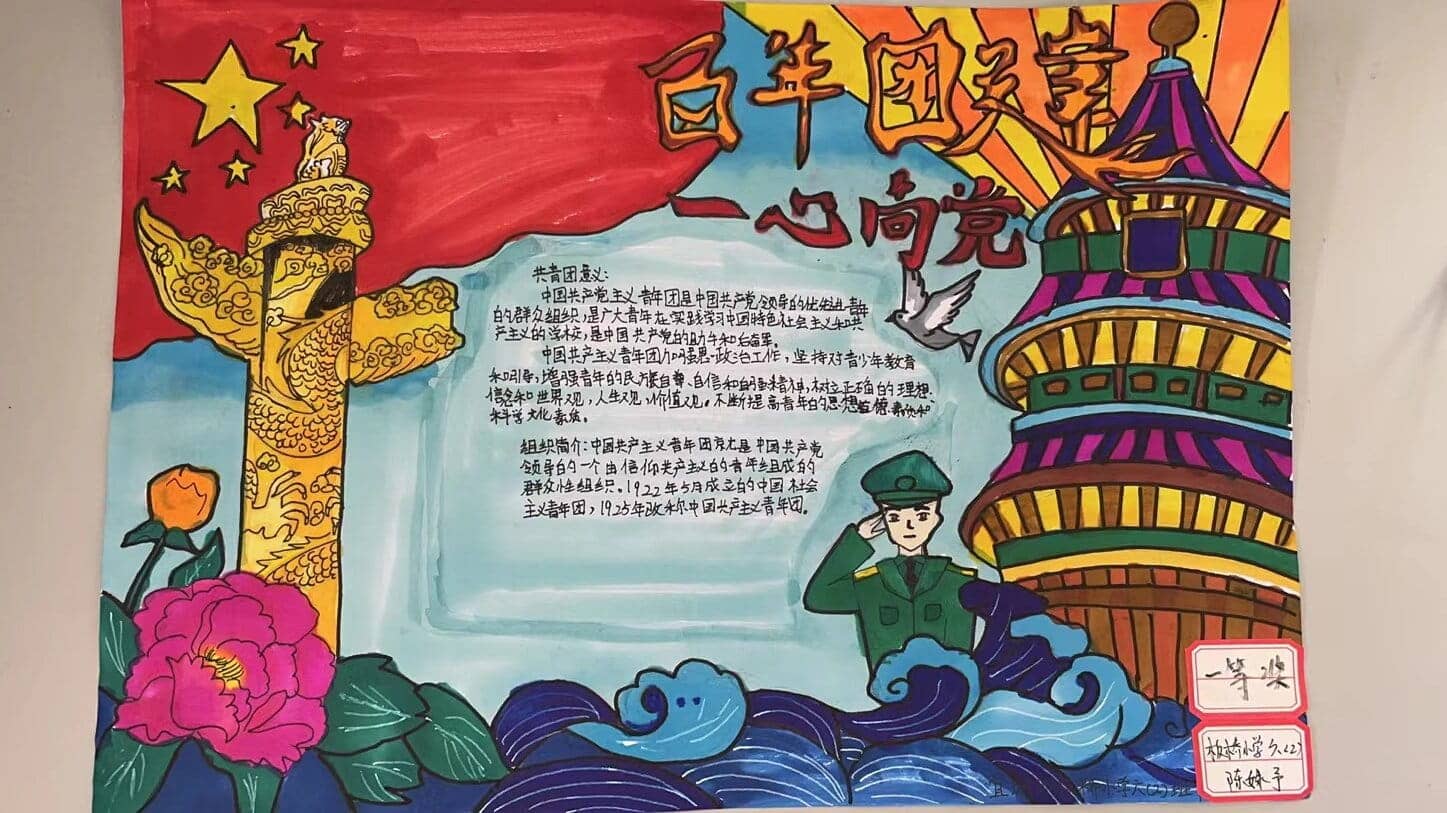 百年团久肇
一心向党
共青团意义:
中国共产党主义青年团是中国共产党领导的优先进青年
的群众组织,是广大青年在实践学习中国特色社会主义和共
产主义的学校,是中国共产党的助手和后备军。
中国共产主义青年团加强思政治工作,坚持对青少年教育
和引导,增强青年的民族自尊、自信和自强精神,树立正确的理想、
信念和世界观,人生观,价值观。不断提高青年的思想道德素质和
科学文化素质。
组织简介:中国共产主义青年团原本是中国共产党
领导的一个由信仰共产主义的青年组成的
群众性组织。1922年5月成立的中国社会
主义青年团,1925年改称中国共产主义青年团。
一等奖
板桥小学六(2)
陈妹予
小学六(2)班